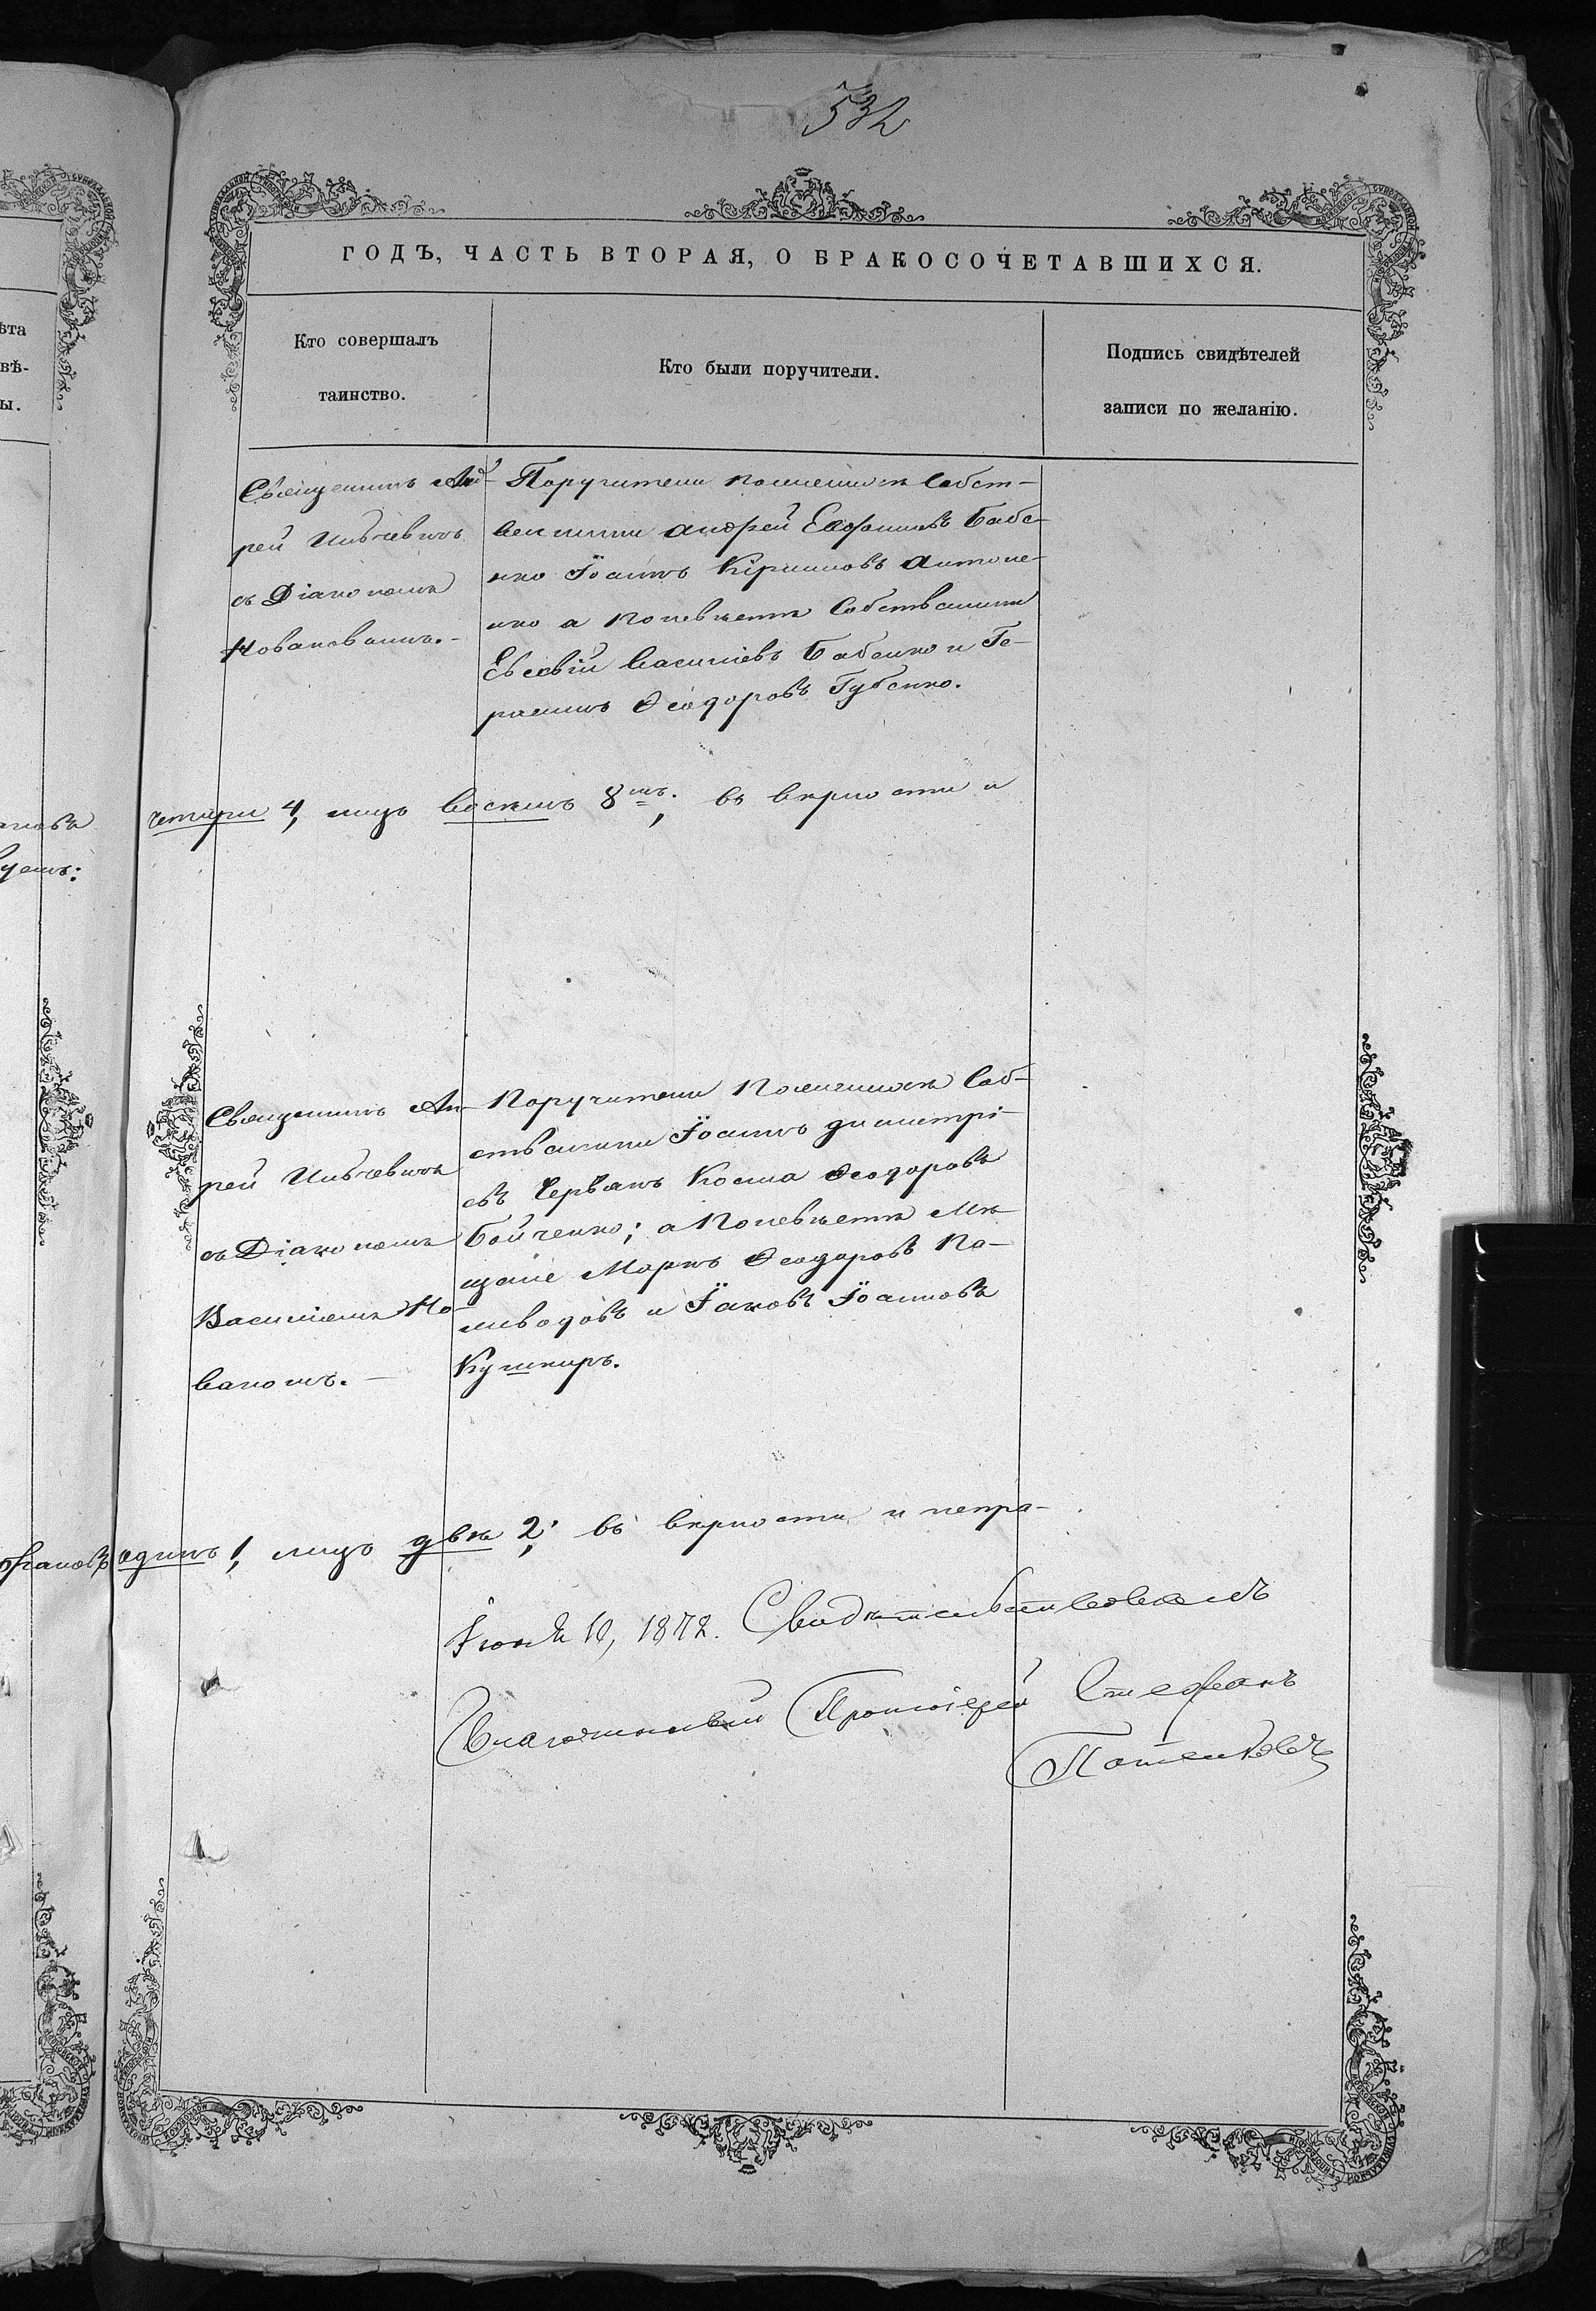 532
ГОДЪ, ЧАСТЬ ВТОРАЯ, О БРАКОСОЧЕТАВШИХСЯ.
Кто совершалъ
таинство.
Кто были поручители.
Подпись свидѣтелей
записи по желанію.
Священникъ Анд-
рей
съ Діакономъ
Новаковымъ.
Поручители по женихѣ Собст-
венники Андрей Бабе-
нко Іоаннъ Кириловъ Антоне-
нко а по невѣстѣ Собственники
Евсевій Васильевъ Бабенко и Ге-
расимъ Ѳеодоровъ Губенко.
четыри 4, лицъ восемь 8мь. въ вѣрности и
Священникъ Ан-
рей
съ Діакономъ
Василіемъ Но-
вакомъ.
Поручители по женихѣ Соб-
ственники Іоаннъ Димитрі-
евъ Червякъ Косма Ѳеодоровъ
Бойченко; а по невѣстѣ Мѣ-
щане Маркъ Ѳеодоровъ По-
ливодовъ и Іаковъ Іоанновъ
Кушниръ.
одинъ 1, лицъ двѣ 2; въ вѣрности и непра-
Іюля 10, 1872. Свидѣтельствовалъ
Благочинный Протоіерей Стефанъ